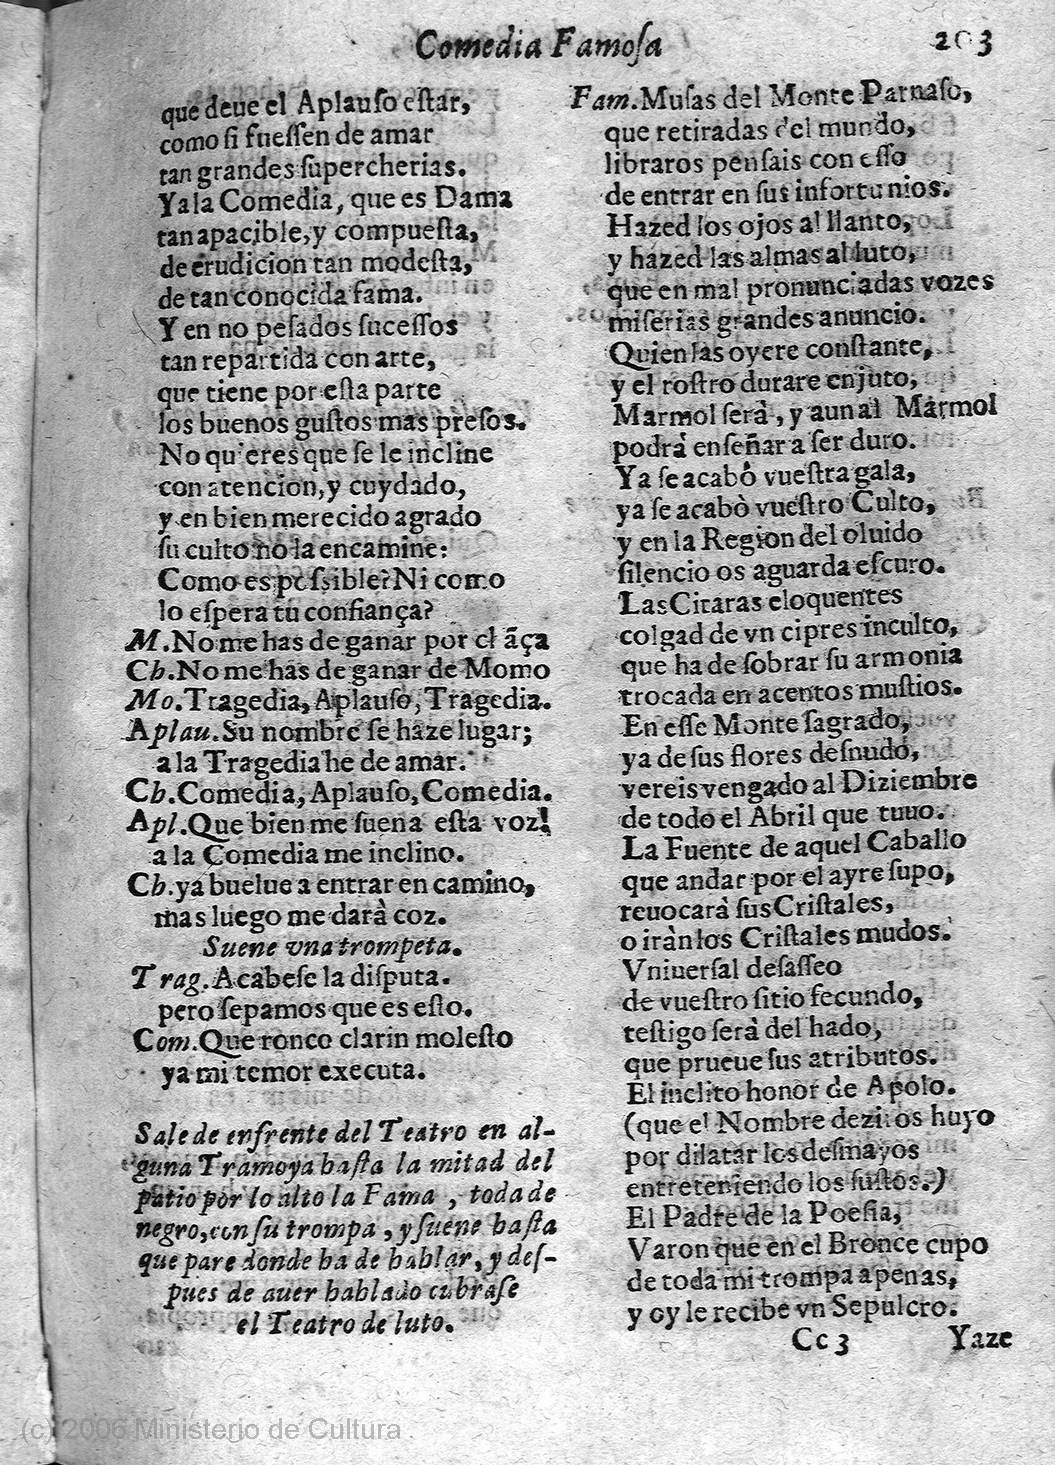 Comedia Famoſa 203
que deue el Aplauſo eſtar,
como ſi fueſſen de amar
tan grandes ſupercherias.
Y a la Comedia, que es Dama
tan apacible, y compueſta,
de erudicion tan modeſta,
de tan conocida fama.
Y en no peſados ſuceſſos
tan repartida con arte,
que tiene por eſta parte
los buenos guſtos mas preſos.
No quieres que ſe le incline
con atencion, y cuydado,
y en bien merecido agrado
ſu culto no la encamine:
Como es poſsible? Ni como
lo eſpera tu confiança?
M. No me has de ganar por el ãça
Ch. No me has de ganar de Momo
Mo. Tragedia, Aplauſo, Tragedia.
Aplau. Su nombre ſe haze lugar;
a la Tragedia he de amar.
Ch. Comedia, Aplauſo, Comedia.
Apl. Que bien me ſuena eſta voz!
a la Comedia me inclino.
Ch. ya buelue a entrar en camino,
mas luego me darà coz.
Suene vna trompeta.
Trag. Acabeſe la diſputa.
pero ſepamos que es eſto.
Com. Que ronco clarin moleſto
ya mi temor executa.
Sale de enfrente del Teatro en al-
guna Tramoya haſta la mitad del
patio por lo alto la Fama, toda de
negro, con ſu trompa, y ſuene haſta
que pare donde ha de hablar, y deſ-
pues de auer hablado cubraſe
el Teatro de luto.
Fam. Muſas del Monte Parnaſo,
que retiradas del mundo,
libraros penſais con eſſo
de entrar en ſus infortunios.
Hazed los ojos al llanto,
y hazed las almas al luto,
que en mal pronunciadas vozes
miſerias grandes anuncio.
Quien las oyere conſtante,
y el roſtro durare enjuto,
Marmol ſerà, y aun al Marmol
podrà enſeñar a ſer duro.
Ya ſe acabò vueſtra gala,
ya ſe acabò vueſtro Culto,
y en la Region del oluido
ſilencio os aguarda eſcuro.
Las Citaras eloquentes
colgad de vn cipres inculto,
que ha de ſobrar ſu armonia
trocada en acentos muſtios.
En eſſe Monte ſagrado,
ya de ſus flores deſnudo,
vereis vengado al Diziembre
de todo el Abril que tuuo.
La Fuente de aquel Caballo
que andar por el ayre ſupo,
reuocarà ſus Criſtales,
o iràn los Criſtales mudos.
Vniuerſal deſaſſeo
de vueſtro ſitio fecundo,
teſtigo ſerà del hado,
que prueue ſus atributos.
El inclito honor de Apolo.
(que el Nombre deziros huyo
por dilatar los deſmayos
entreteniendo los ſuſtos.)
El Padre de la Poeſia,
Varon que en el Bronce cupo
de toda mi trompa apenas,
y oy le recibe vn Sepulcro.
Cc 3 Yaze
(c) 2006 Ministerio de Cultura